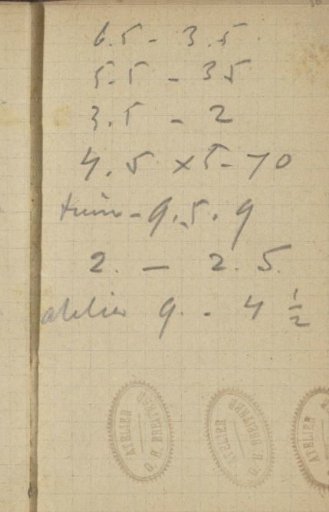 6.5 - 3.5.
5.5 - 35
3.5 - 2
4.5 x 5 - 70
- 9.5. 9
2. - 2.5.
atelier 9. - 4 1/2
ATELIER
ATELIER
ATELIER